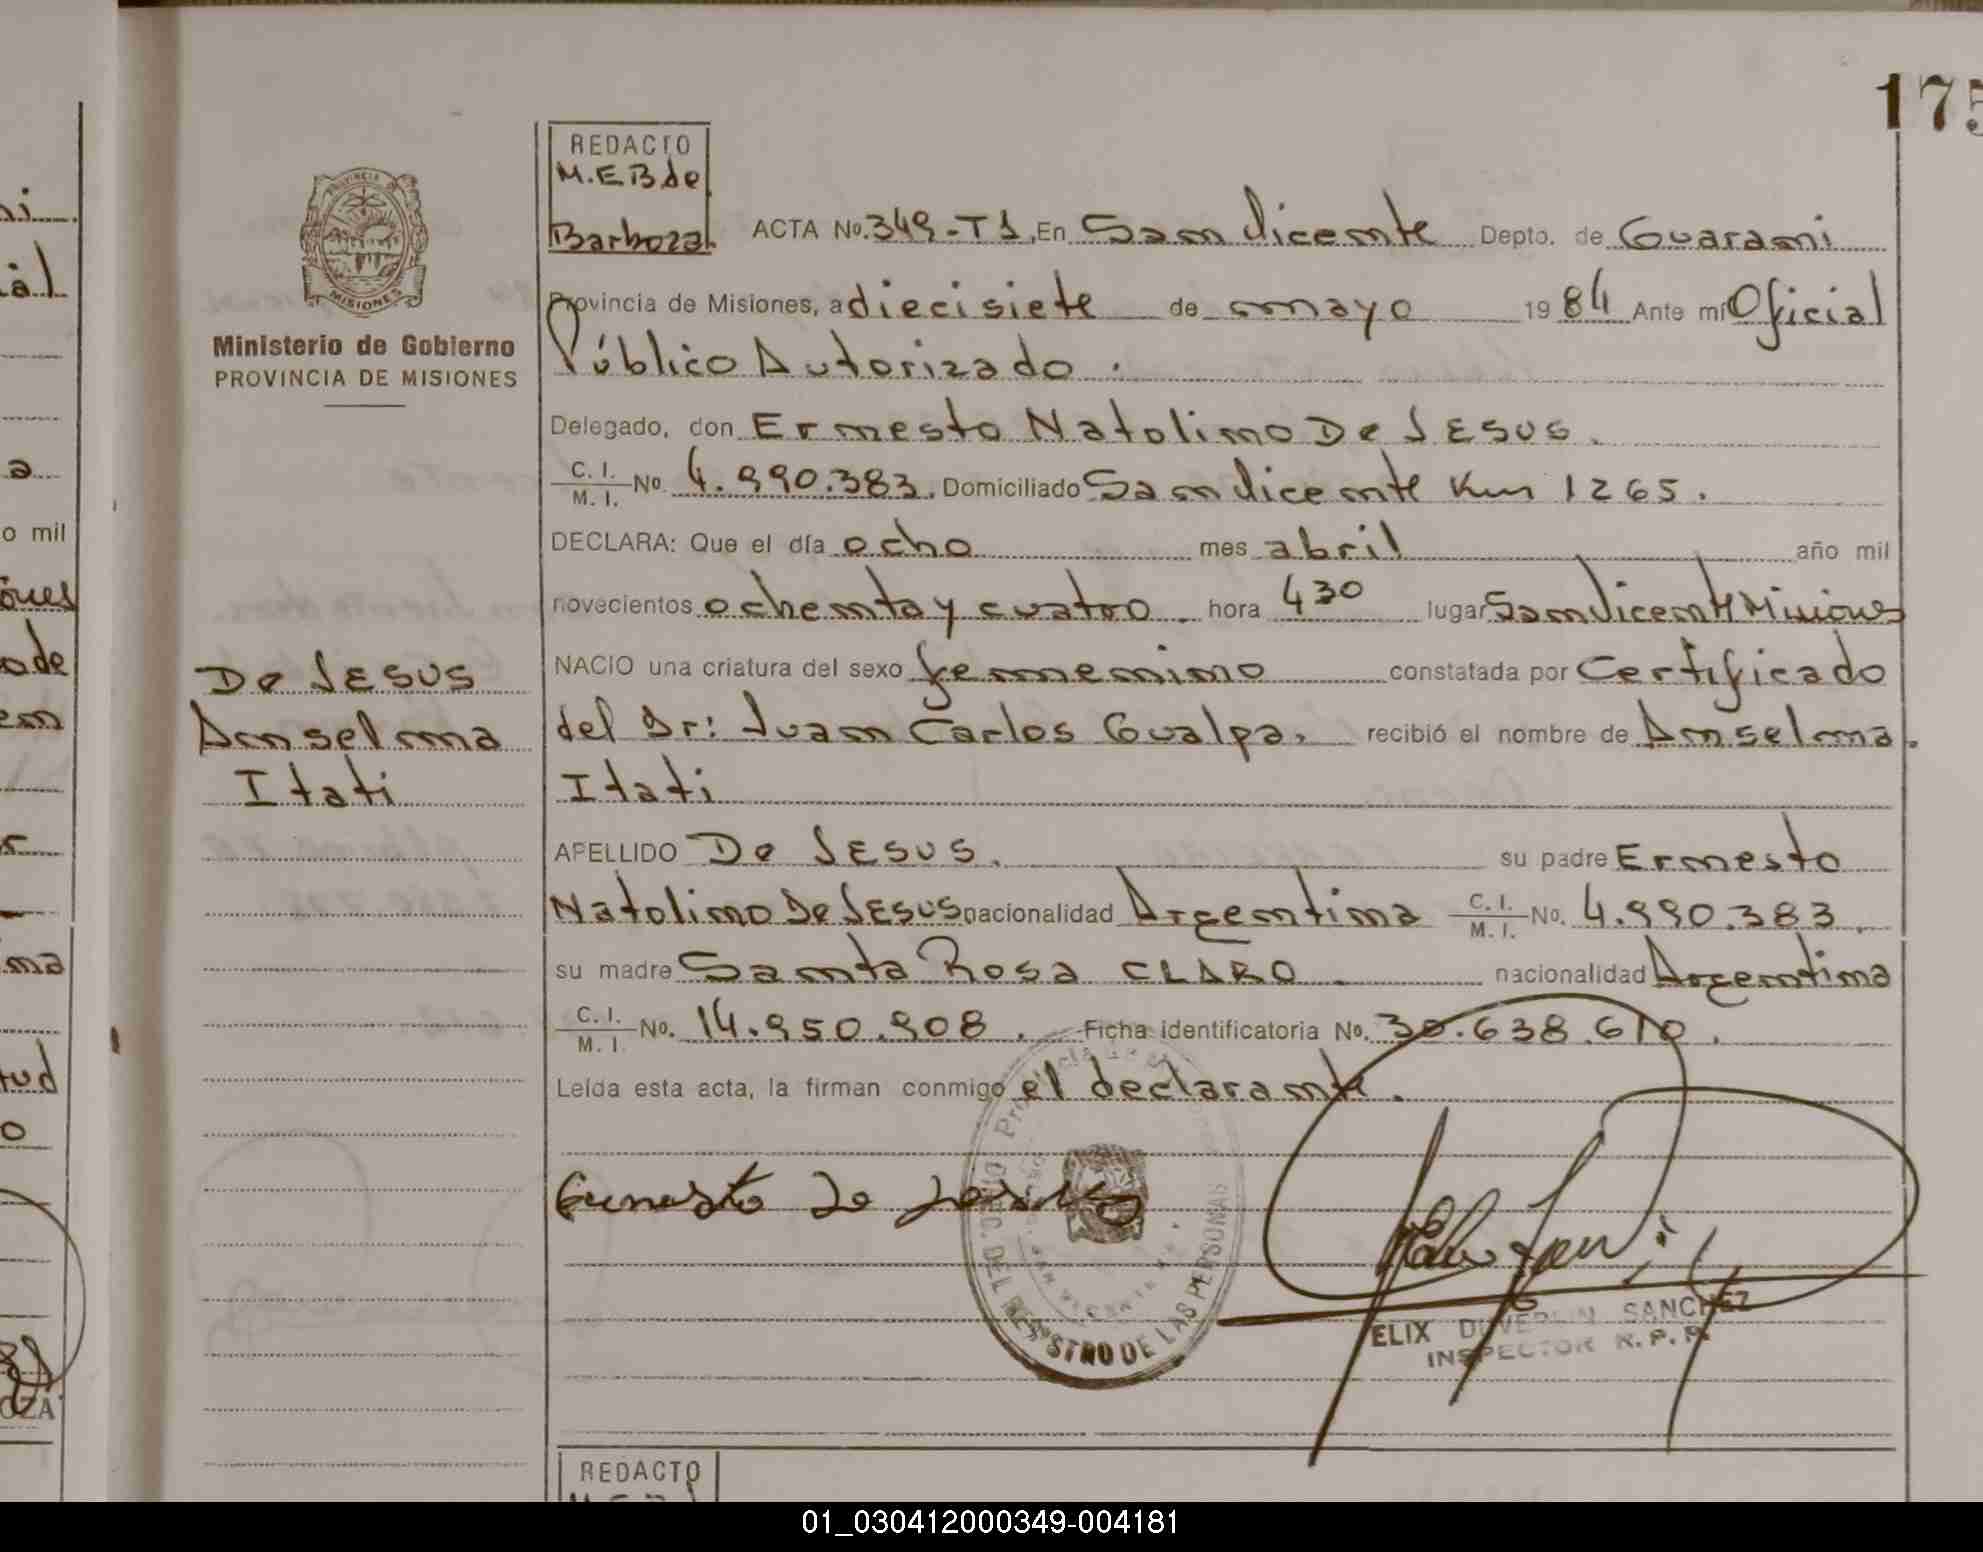 175
REDACTO
M.E.B de
Barboza.
ACTA No. 349-T1, En San Vicente Depto. de Guarani
Provincia de Misiones, a diecisiete de mayo 1984 Ante mí Oficial
Público Autorizado.
Delegado, don Ernesto Natolino De JESUS.
C. I. / M. I. No. 4.990.383. Domiciliado San Vicente Km 1265.
DECLARA: Que el día ocho mes abril año mil
novecientos ochenta y cuatro. hora 4 30 lugar San Vicente Misiones
NACIO una criatura del sexo femenino constatada por Certificado
del Dr: Juan Carlos Gualpa, recibió el nombre de Anselma
Itati
APELLIDO De JESUS. su padre Ernesto
Natolino De JESUS nacionalidad Argentina C. I. / M. I. No. 4.990.383.
su madre Santa Rosa CLARO. nacionalidad Argentina
C. I. / M. I. No. 14.950.908. Ficha identificatoria No. 30.638.610.
Leída esta acta, la firman conmigo el declarante.
Ernesto De Jesus
DEL REGISTRO DE LAS PERSONAS
ELIX DUVERLIN SANCHEZ
INSPECTOR R. P. P.
PROVINCIA DE MISIONES
Ministerio de Gobierno
PROVINCIA DE MISIONES
De JESUS
Anselma
Itati
REDACTO
01_030412000349-004181